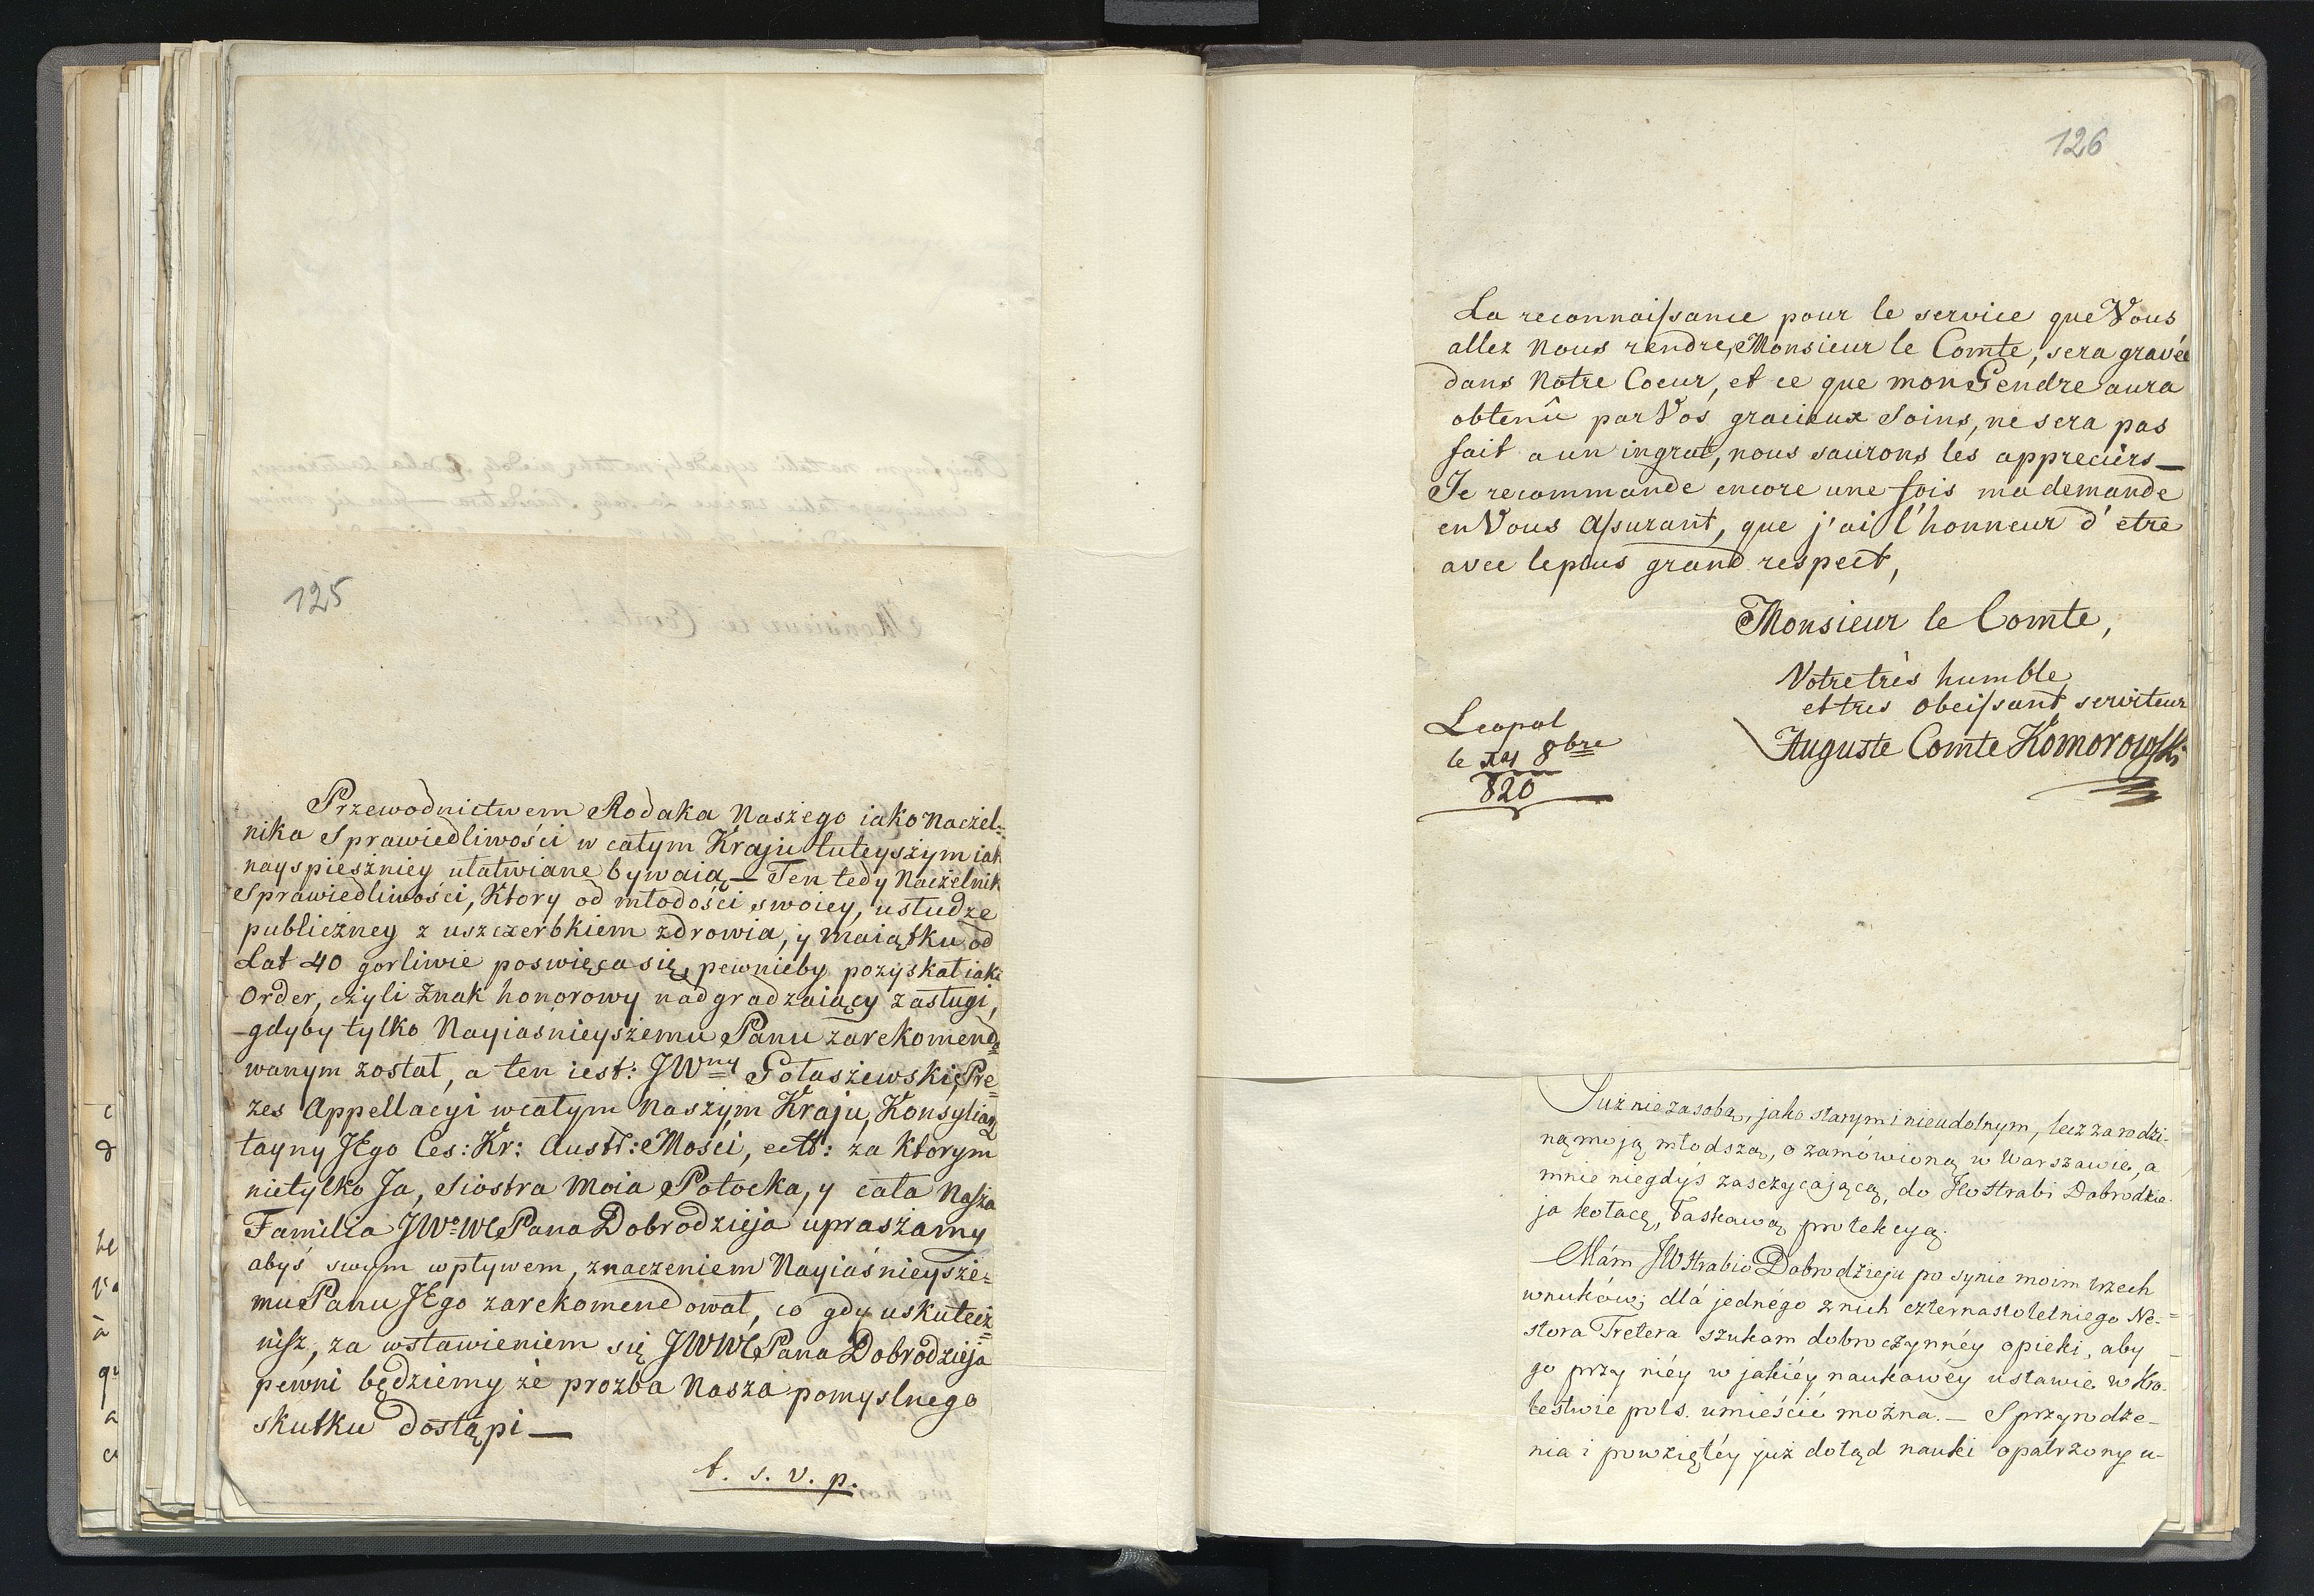 125
Przewodnictwem Rodaka Naszego iako Naczel=
nika Sprawiedliwości w całym Kraju tuteyszym iak
nayspieszniey ułatwiane bywaią — Ten tedy Naczelnik
Sprawiedliwości, Ktory od młodości swoiey, usłudze
publiczney z uszczerbkiem zdrowia, y Maiątku od
Lat 40 gorliwie poswięca się, pewnieby pozyskał iaki
Order, czyli Znak honorowy nadgradzaiący zasługi,
gdyby tylko Nayiaśnieyszemu Panu zarekomendo=
wanym został, a ten iest: JWny Gołaszewski, Pre=
zes Appellacyi w całym Naszym Kraju, Konsyliarz
tayny JEgo Ces: Kr: Austr: Mości, ectt: za Ktorym
nietylko Ja, Siostra Moia Potocka, y cała Nasza
Familia JWo W Pana Dobrodzieja upraszamy
abyś swym wpływem, znaczeniem Nayiaśnieysze=
mu Panu JEgo zarekomendował, co gdy uskutecz=
nisz, za wstawieniem się JWW Pana Dobrodzieja
pewni będziemy że prozba Nasza pomyslnego
skutku dostąpi —
t. s. v. p.
126
La reconnaissance pour le service que Vous
allez Nous rendre, Monsieur le Comte, sera gravée
dans Notre Coeur, et ce que mon Gendre aura
obtenû par Vos gracieux Soins, ne sera pas
fait a un ingrat, nous saurons les appreciers —
Je recommande encore une fois ma demande
en Vous Assurant, que j'ai l'honneur d'etre
avec le plus grand respect,
Monsieur le Comte,
Votre très humble
et tres obeissant serviteur
Auguste Comte Komorowski
Leopol
le 8bre
820
Już nie za sobą, jako starym i nieudolnym, lecz za rodzi-
ną moją młodszą, o zamówioną w Warszawie, a
mnie niegdyś zasczycającą, do JW Hrabi Dobrodzie-
ja kołacę, łaskawą protekcyą.
Mám JW Hrabio Dobrodzieju po synie moim trzech
wnuków; dlá jednégo z nich czternastoletniego Ne-
stora Tretera szukam dobroczynnéy opieki, aby
go przy niéy w jakiéy naukowéy ustawie w Kró-
lestwie pols. umieścić można. — Z przyrodze-
nia i powziętéy już dotąd nauki opatrzony u-